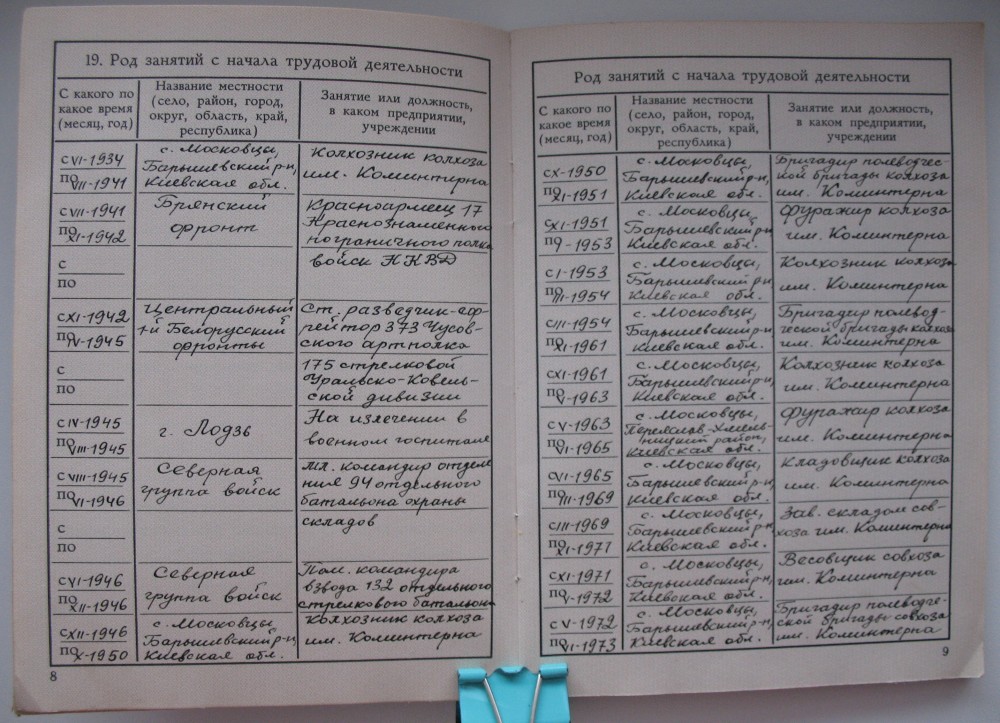 19. Род занятий с начала трудовой деятельности
С какого по
какое время
(месяц, год)
Название местности
(село, район, город,
округ, область, край,
республика)
Занятие или должность,
в каком предприятии,
учреждении
с VI-1934
по VII-1941
с. Московцы,
Барышевский р-н,
Киевская обл.
Колхозник колхоза
им. Коминтерна
с VII-1941
по XI-1942
Брянский
фронт
Красноармеец 17
Краснознаменного
пограничного полка
войск НКВД
с
по
с XI-1942
по IV-1945
Центральный
1-й Белорусский
фронты
Ст. разведчик-еф-
рейтор 373 Чусов-
ского артполка
с
по
175 стрелковой
Уральско-Ковель-
ской дивизии
с IV-1945
по VIII-1945
г. Лодзь
На излечении в
военном госпитале
с VIII-1945
по VI-1946
Северная
группа войск
Мл. командир отделе
ния 94 отдельного
батальона охраны
складов
с
по
с VI-1946
по XII-1946
Северная
группа войск
Пом. командира
взвода 132 отдельного
стрелкового батальона
с XII-1946
по X-1950
с. Московцы,
Барышевский р-н,
Киевская обл.
Колхозник колхоза
им. Коминтерна
8
Род занятий с начала трудовой деятельности
С какого по
какое время
(месяц, год)
Название местности
(село, район, город,
округ, область, край,
республика)
Занятие или должность,
в каком предприятии,
учреждении
с X-1950
по XI-1951
с. Московцы,
Барышевский р-н,
Киевская обл.
Бригадир полеводчес-
кой бригады колхоза
им. Коминтерна
с XI-1951
по -1953
с. Московцы,
Барышевский р-н,
Киевская обл.
Фуражир колхоза
им. Коминтерна
с I-1953
по III-1954
с. Московцы,
Барышевский р-н,
Киевская обл.
Колхозник колхоза
им. Коминтерна
с III-1954
по XI-1961
с. Московцы,
Барышевский р-н,
Киевская обл.
Бригадир полевод-
ческой бригады колхоза
им. Коминтерна
с XI-1961
по V-1963
с. Московцы,
Барышевский р-н,
Киевская обл.
Колхозник колхоза
им. Коминтерна
с V-1963
по VI-1965
с. Московцы,
Переяслав-Хмель-
ницкий район,
Киевская обл.
Фуражир колхоза
им. Коминтерна
с VI-1965
по III-1969
с. Московцы,
Барышевский р-н,
Киевская обл.
Кладовщик колхоза
им. Коминтерна
с III-1969
по XI-1971
с. Московцы,
Барышевский р-н,
Киевская обл.
Зав. складом сов-
хоза им. Коминтерна
с XI-1971
по V-1972
с. Московцы,
Барышевский р-н,
Киевская обл.
Весовщик совхоза
им. Коминтерна
с V-1972
по VI-1973
с. Московцы,
Барышевский р-н,
Киевская обл.
Бригадир полеводче-
ской бригады совхоза
им. Коминтерна
9